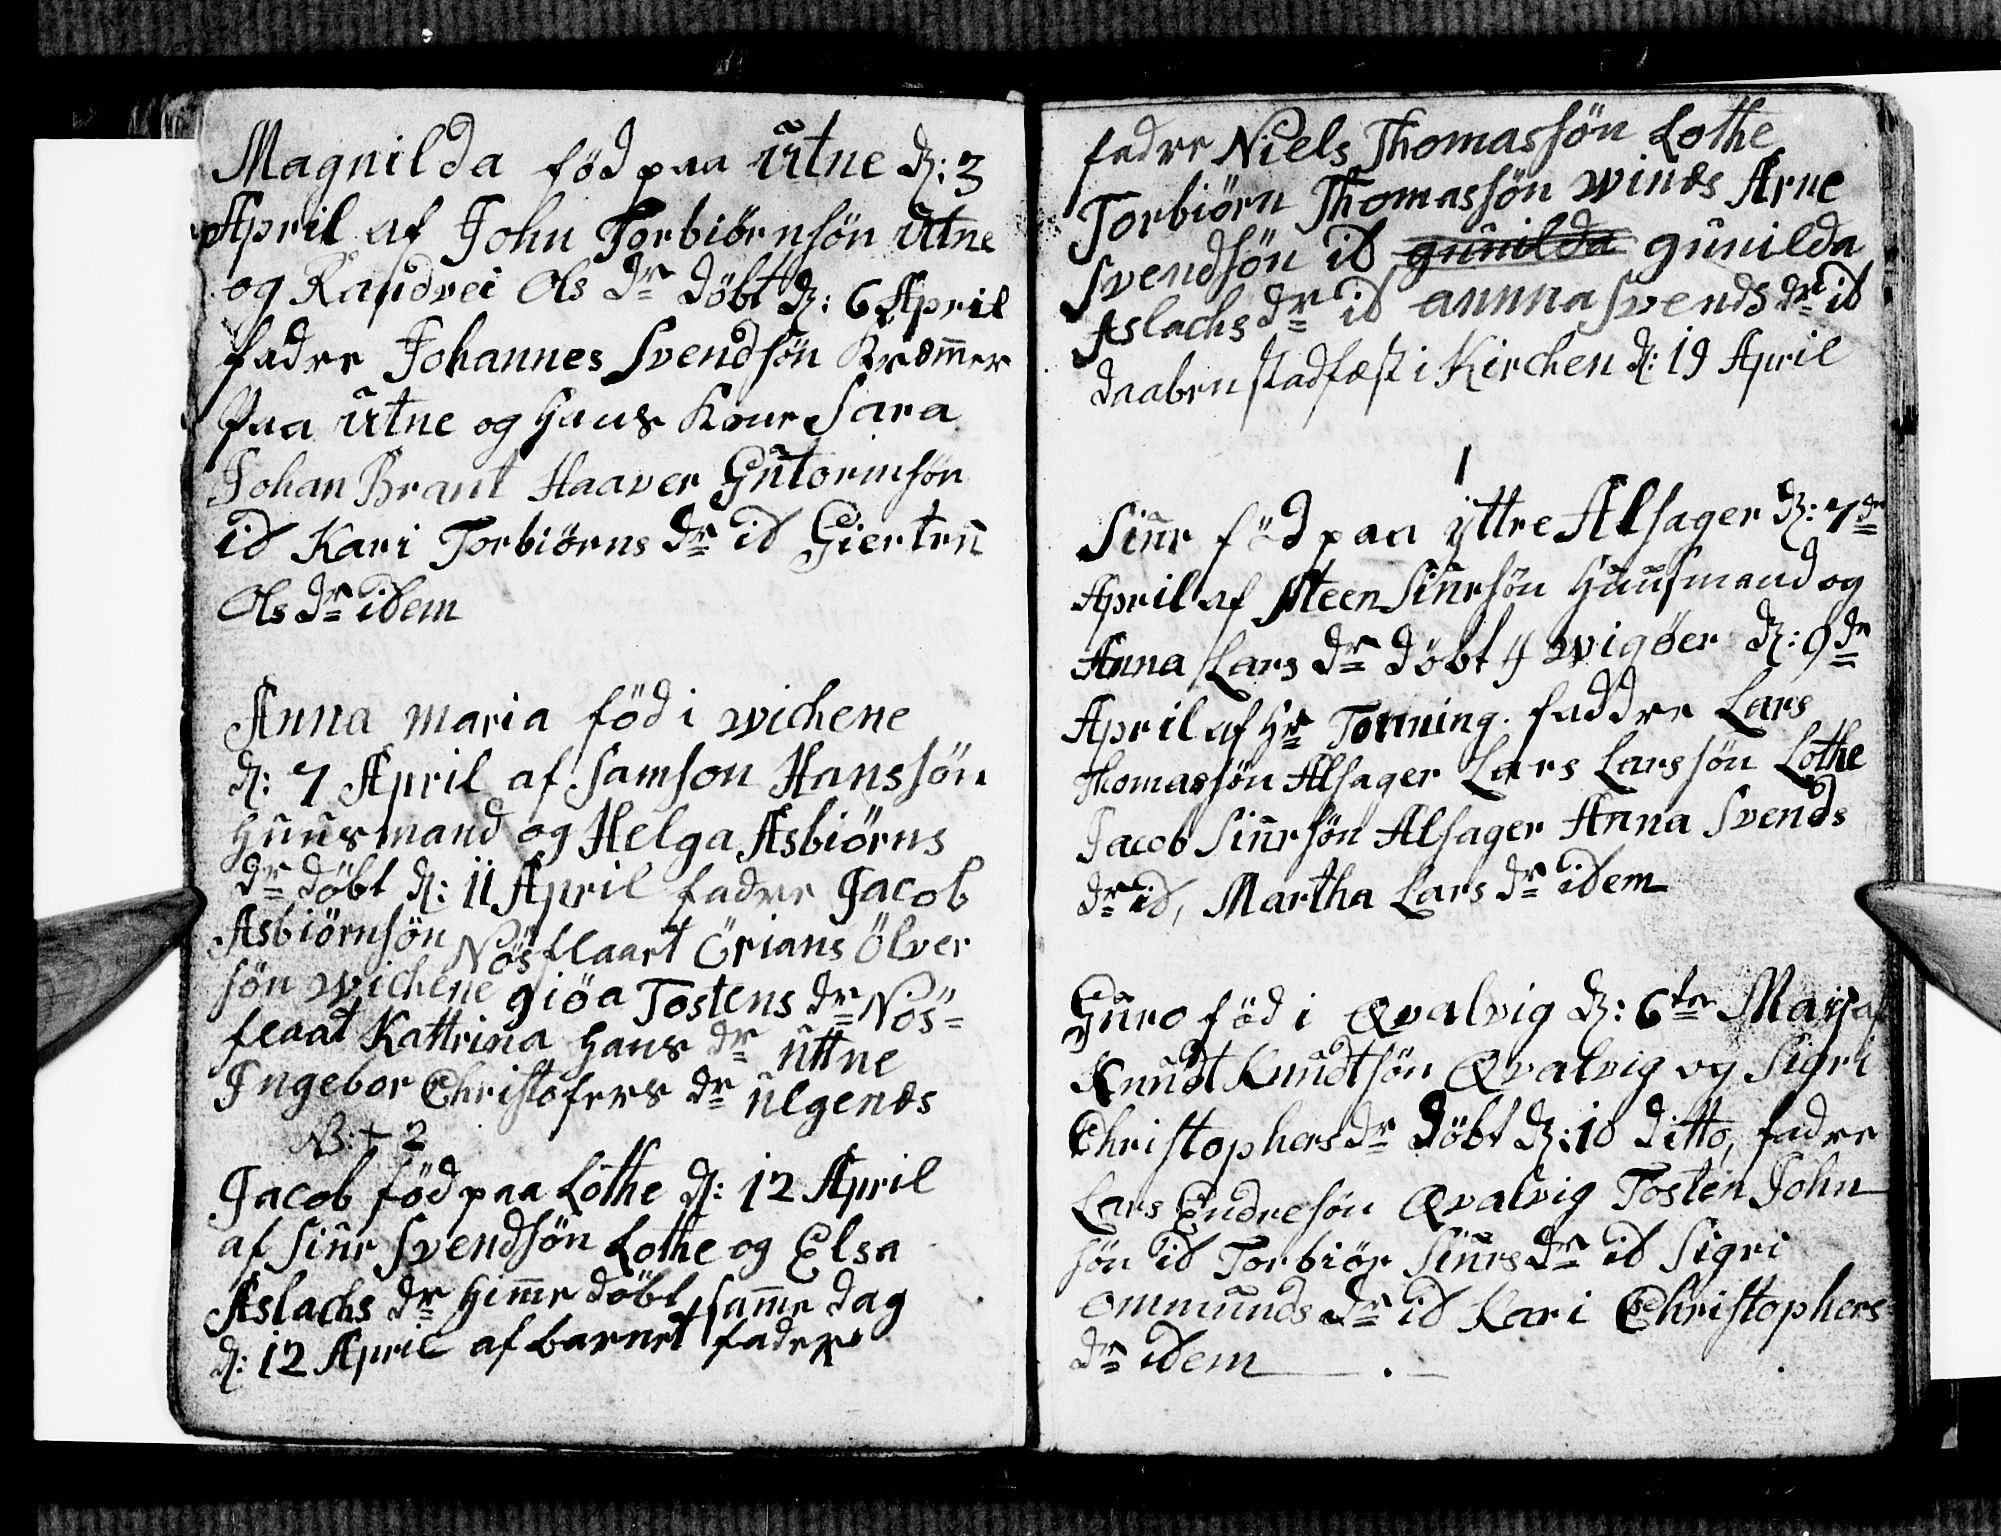 Magnilda föd paa Utne d: 3
April af John Torbiørnsön Utne
og Randvei Ols dr döbt d: 6 April
fadre Johannes Svendsön Kræmer
paa Utne og Hans Kone Sara
Johan Brant Haaver Guttormsön
id Kari Torbiörns dr id Giertru
Ols dr idem
Anna maria föd i wichene
d: 7 April af Samson Hanssön
Huusmand og Helga Asbiörns
dr döbt d: 11 April fadre Jacob
Asbiörnsön Nösflaart Örians Ölver
sön wichene giöa Tostens dr Nös=
flaat Kattrina Hans dr uttne
Ingebor Christofers dr ulgenes
NB: + 2
Jacob föd paa Lothe d: 12 April
af Siur Svendsön Lothe og Elsa
Aslachs dr Hiemme döbt samme dag
d: 12 April af barnet fader
fadre Niels Thomassön Lothe
Torbiörn Thomassön winæs Arne
Svendsön id gunilda gunilda
Aslachs dr id annna Svends dr id
daaben stadfæst i Kirchen d: 19 April
1
Siur föd paa yttre Alsager d: 7de
April af Steen Siursön Huusmand og
Anna Lars dr döbt i wigöer d: 9de
April af Hr Tonning. faddre Lars
Thomassön Alsager Lars Larssön Lothe
Jacob Siursön Alsager Anna Svends
dr id, Martha Lars dr idem
Guro föd i Qvalvig d: 6te Maij af
Knudt Knudtsön Qvalvig og Sigri
Christophersdr döbt d: 10 ditto, fadre
Lars Endresön Qvalvig Tosten John
sön id Torbiör Siurs dr id Sigri
Ommunds dr id Kari Christophers
dr idem